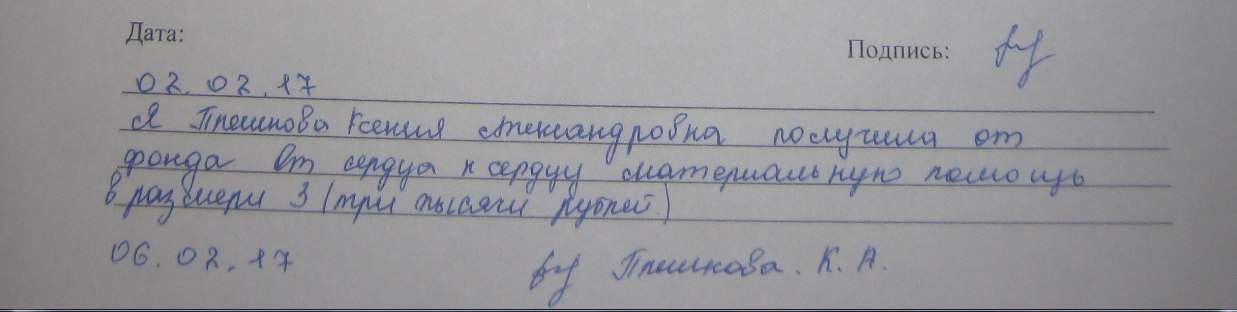 Дата:
Подпись:
02.02.17
Я Плешкова Ксения Александровна получила от
фонда От сердца к сердцу материальную помощь
в размери 3 (три тысячи рублей)
06.02.17 Плешкова. К. А.